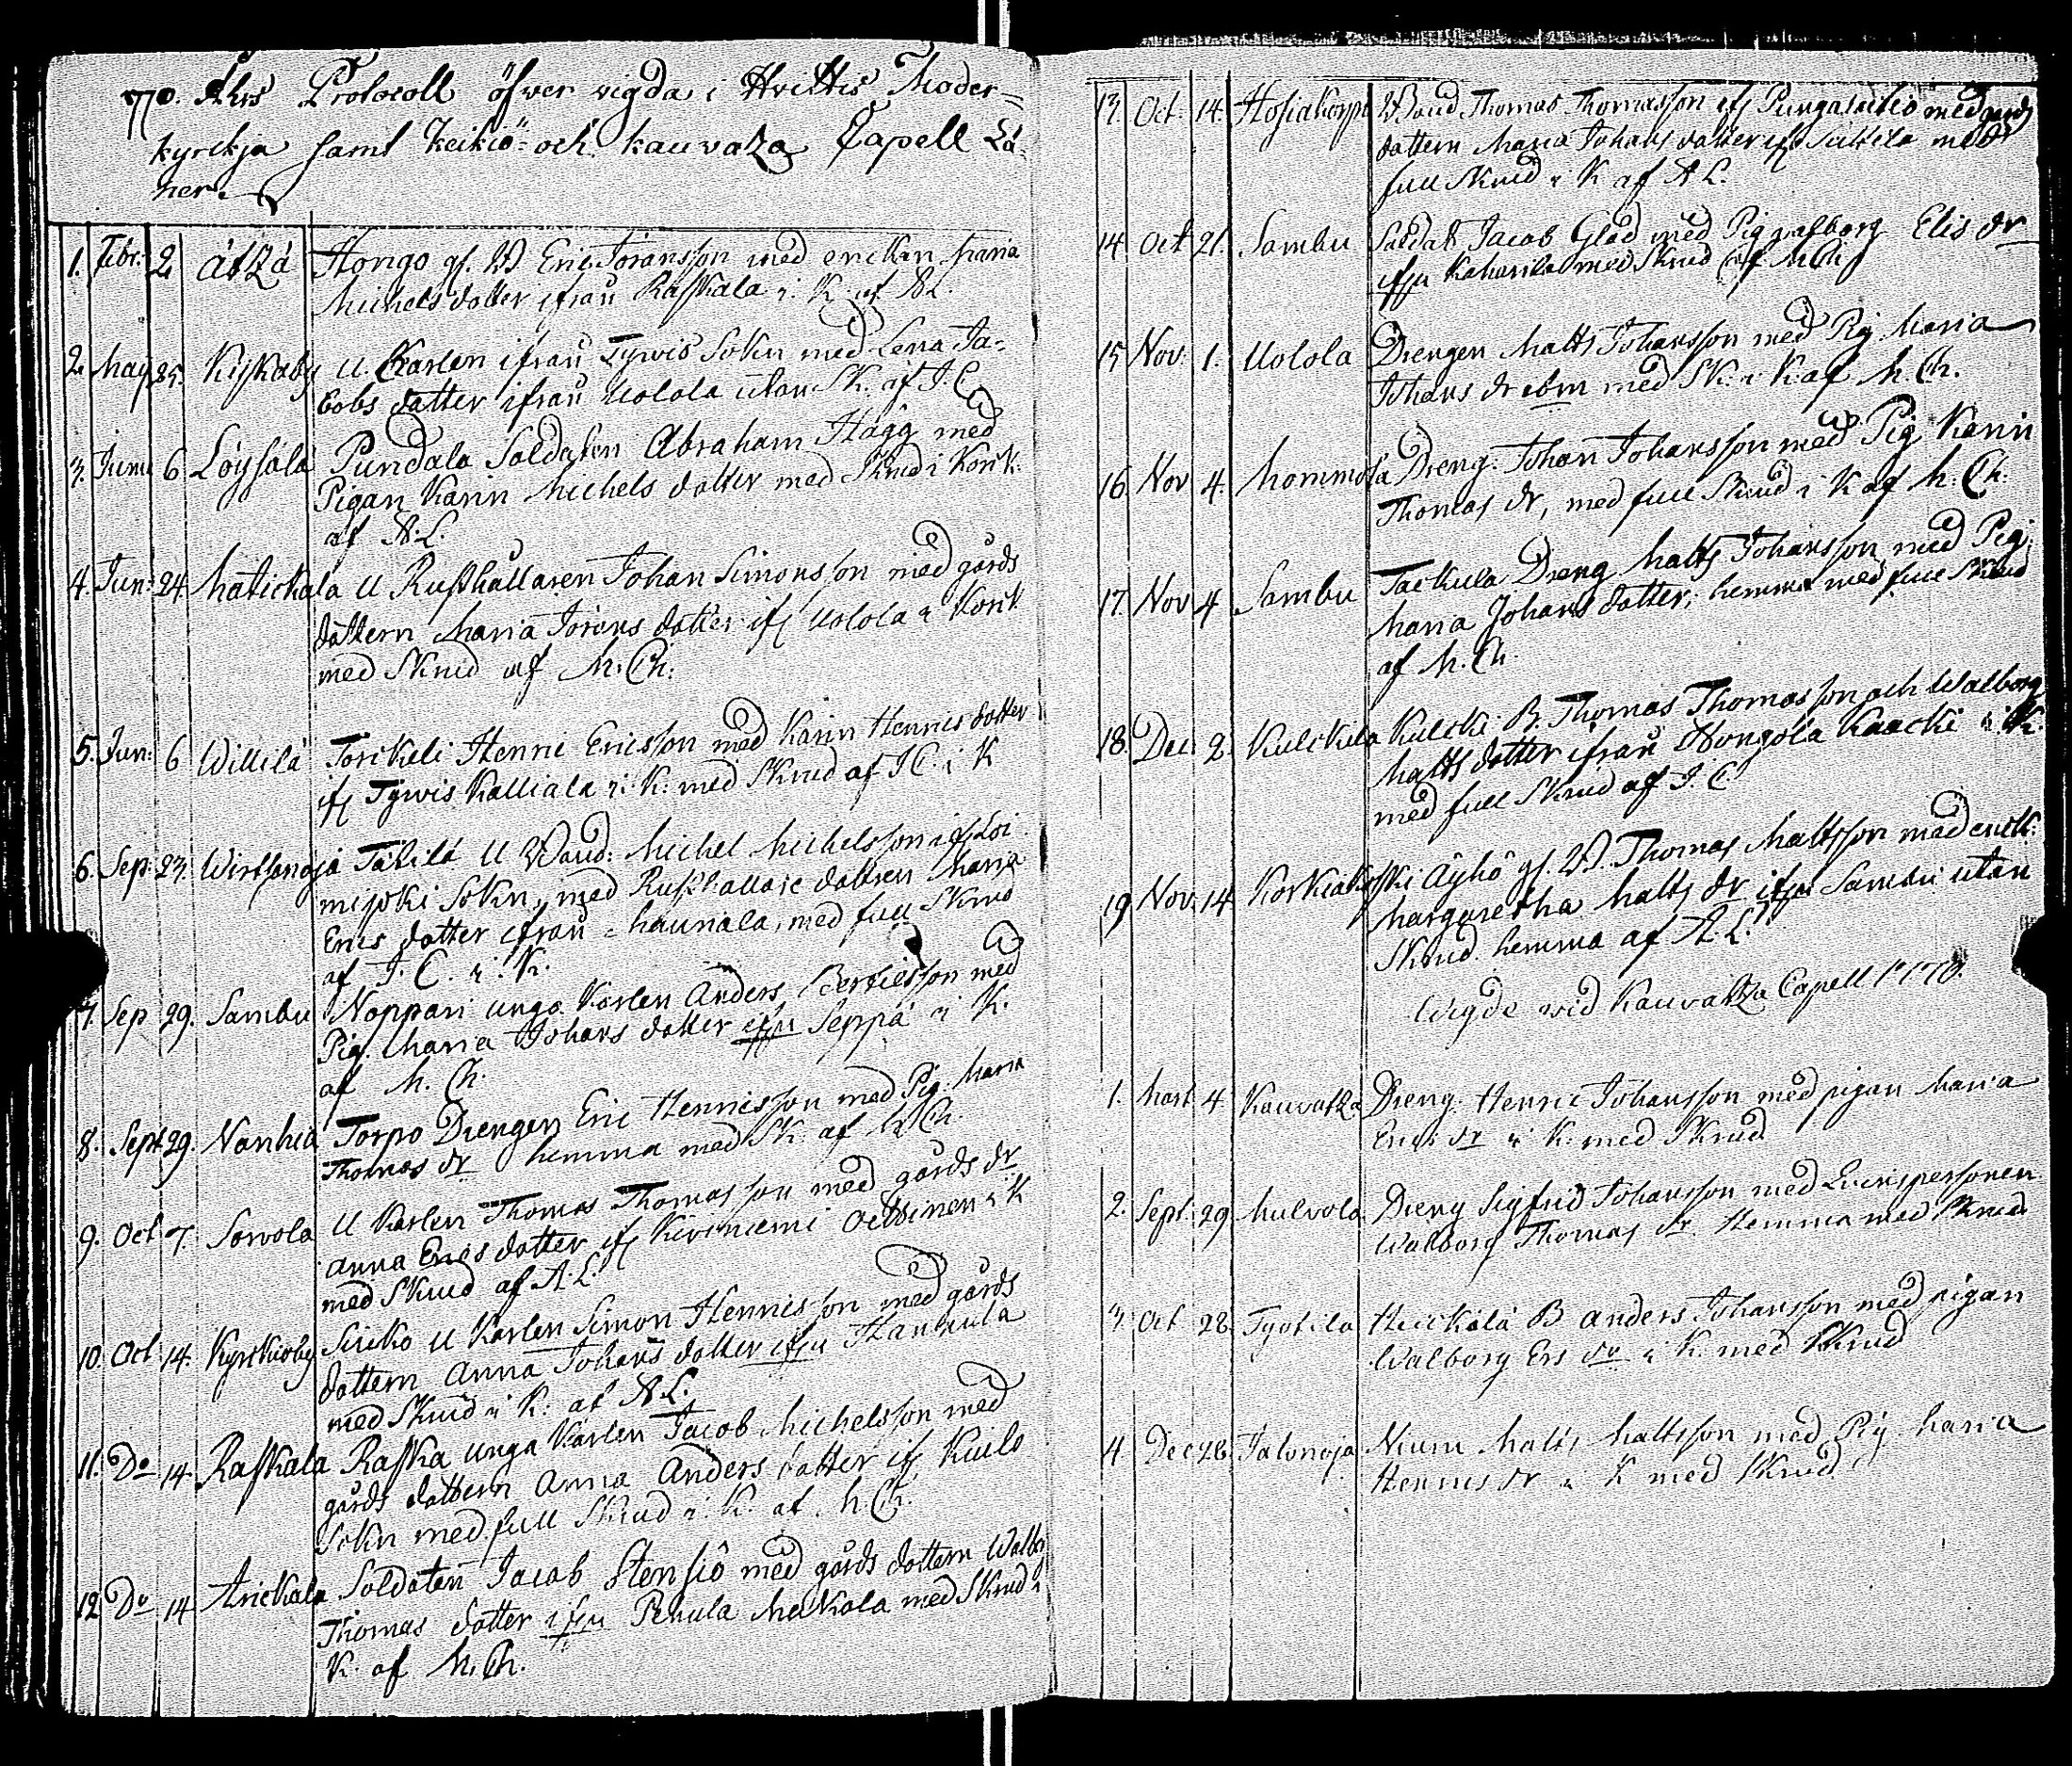 1770. Åhrs Protocoll öfwer vigda i Hvittis Moder=
kyrckja samt Keikiö- och kauvatza Capell Lä-
ner.
1. Febr: 2. Ätzä Hongo gl. W Eric Jöransson med enckan Maria
Michels dotter ifrån Raskala i K. af AL.
2. May 25. Kiskaby U. Karlen ifrån Tyrvis Sokn med Lena Ja-
cobs dotter ifrån Uolola utan SK. af J. C.
3. Junii 6 Löysälä Pundala Soldaten Abraham Hägg med
Pigan Karin Michels dotter med Skrud i Kyrk.
af A. L.
4. Jun: 24. Matickala U Rusthållaren Johan Simonsson med gårds
dottern Maria Jörans dotter ifr Uolola i Kyrk.
med Skrud af M. Ch.
5. Jun: 6 Willilä Torikeli Henric Ericsson med Karin Henrics dotter
ifr Tyrvis Kalliala i K. med Skrud af J C. i K
6. Sep: 23. Wirtsanoja Tähilä U Wäud: Michel Michelsson if Loi
mijoki Sokn, med Rusthållare dottren Maria
Erics dotter ifrån Haunala, med full Skrud
af J. C. i K.
7. Sep 29. Sambu Noppari unga Karlen Anders Bertilsson med
Pig. Maria Johans dotter ifrn Seppä i K.
af M. Ch.
8. Sept 29. Nanhia Torpo Drengen Eric Henricsson med Pig. Maria
Thomas dr hemma med SK. af M Ch.
9. Oct 7. Sorvola U Karlen Thomas Thomasson med gårds dr
Anna Erics dotter ifr Kiviniemi i K
med Skrud af A. L.
10. Oct 14. Kyrckioby Siriko U Karlen Simon Henricsson med gårds
dottern Anna Johans dotter ifrn Hanhula
med Skrud i K. af A L.
11. Do 14. Raskala Raska unga Karlen Jacob Michelsson med
gårds dottern Anna Anders dotter ifr Kiulo
Sokn med full Skrud i K. af M. Ch.
12 Do 14 Arickala Soldaten Jacob Stensiö med gårds dottern Walb:
Thomas dotter ifrn Penula Mackala med Skrud i
K. af M. Ch.
13. Oct. 14. Hosiakorpi Wäud Thomas Thomasson ifr Pungalaitio med gårds
dottern Maria Johans dotter ifr Suttila med
full Skrud i K af A L.
14. Oct 21. Sambu Soldat Jacob Glad med Pig walborg Elis dr
ifrn Kaharila med Skrud af M Ch
15 Nov. 1. Uolola Drengen Matts Johansson med Pig. Maria
Johans dr ibm med SK. i K. af M. Ch.
16. Nov 4. Mommola Dreng. Johan Johansson med Pig Karin
Thomas dr, med full Skrud i K af M. Ch.
17. Nov 4 Sambu Tackula Dreng Matts Johansson med Pig:
Maria Johans dotter, hemma med full Skrud
af M. Ch.
18. Dec 2. Kulckila Kulcki B. Thomas Thomasson och Walborg
Matts dotter ifrån Hongola Kaacki i K.
med full Skrud af J. C.
19 Nov. 14 Korkiakoski Äyhö gl. W. Thomas Mattsson med enck:
Margaretha Matts dr ifrn Sambu utan
Skrud. hemma af A. L.
Wigde wid Kauvatza Capell 1770.
1. Mart 4. Kauvatza Dreng. Henric Johansson med pigan Maria
Erics dr i K. med Skrud.
2. Sept. 29. Mulvola Dreng Sigfrid Johansson med Qvinspersonen
Walborg Thomas dr. Hemma med Skrud
3. Oct 28. Tyotila Heickilä B Anders Johansson med pigan
Walborg Ers dr i K. med Skrud
4. Dec 26. Jalonoja Nium Matts Mattsson med Pig. Maria
Henrics dr i K med Skrud